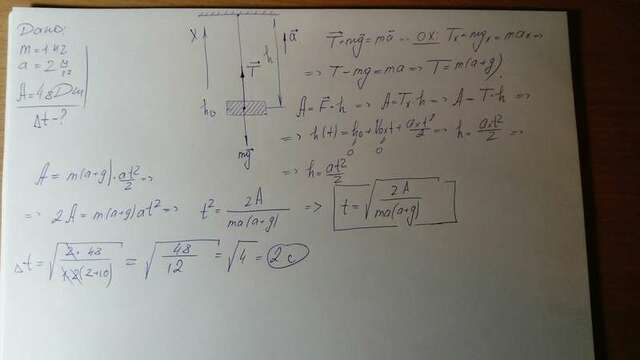 Дано:
m = 1 кг
a = 2 м/с²
A = 48 Дж
Δt - ?
X
h₀
T⃗
mg⃗
h
a⃗
T⃗ + mg⃗ = ma⃗ -- OX: Tₓ - mgₓ = maₓ =>
=> T - mg = ma => T = m(a+g)
A = F⃗·h => A = Tₓ·h => A = T·h =>
=> h(t) = h₀ + V₀ₓt + aₓt²/2 => h = aₓt²/2 =>
0 0
=> h = at²/2
A = m(a+g)·at²/2 =>
=> 2A = m(a+g)at² => t² = 2A/ma(a+g) => t = √(2A/ma(a+g))
Δt = √(2·48/1·2(2+10)) = √(48/12) = √4 = 2 с